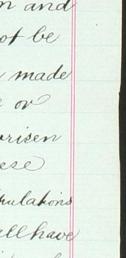 n and
ot be
made
or
risen
ese
ulations
all have